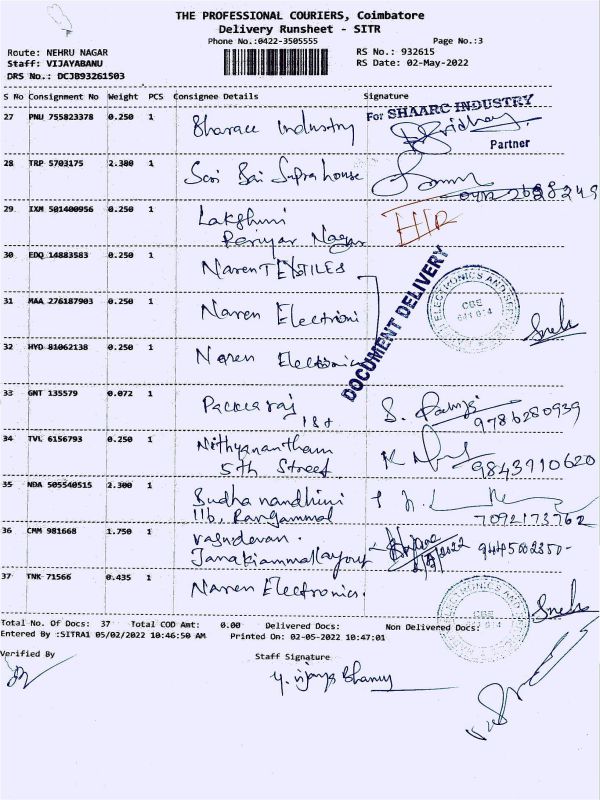 THE PROFESSIONAL COURIERS, Coimbatore
Delivery Runsheet - SITR
Phone No.:0422-3505555 Page No.:3
Route: NEHRU NAGAR RS No.: 932615
Staff: VIJAYABANU RS Date: 02-May-2022
DRS No.: DCJB93261503
S No Consignment No Weight PCS Consignee Details Signature
27 PNU 755823378 0.250 1 Industry For SHAARC INDUSTRY
Partner
28 TRP 5703175 2.380 1 house
29 IXM 501400956 0.250 1 Lakshmi
Periyar Nagar
30 EDQ 14883583 0.250 1 Naren TEXTILES
DOCUMENT DELIVERY
31 MAA 276187903 0.250 1 Naren
ELECTRONICS AND
CBE
641 014
32 HYD 81062138 0.250 1 Naren
33 GNT 135579 0.072 1 9786280939
34 TVL 6156793 0.250 1 Nithyanantham 9843910620
5th Street
35 NDA 505540515 2.300 1 Budha nandhini
11b, Rangammal 7092173762
36 CMM 981668 1.750 1 Vasudevan
37 TNK 71566 0.435 1 Naren Electronics.
CBE
Total No. Of Docs: 37 Total COD Amt: 0.00 Delivered Docs: Non Delivered Docs:
Entered By :SITRA1 05/02/2022 10:46:50 AM Printed On: 02-05-2022 10:47:01
Verified By Staff Signature